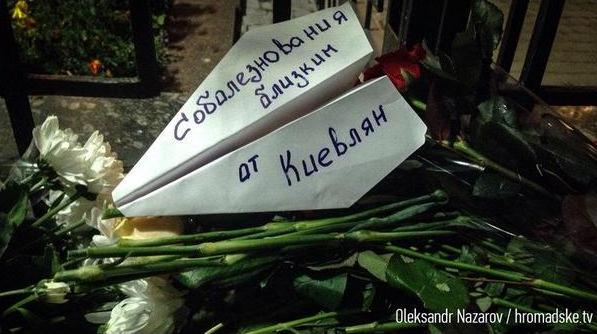 Собалезнования
близким
от Киевлян
Oleksandr Nazarov / hromadske.tv